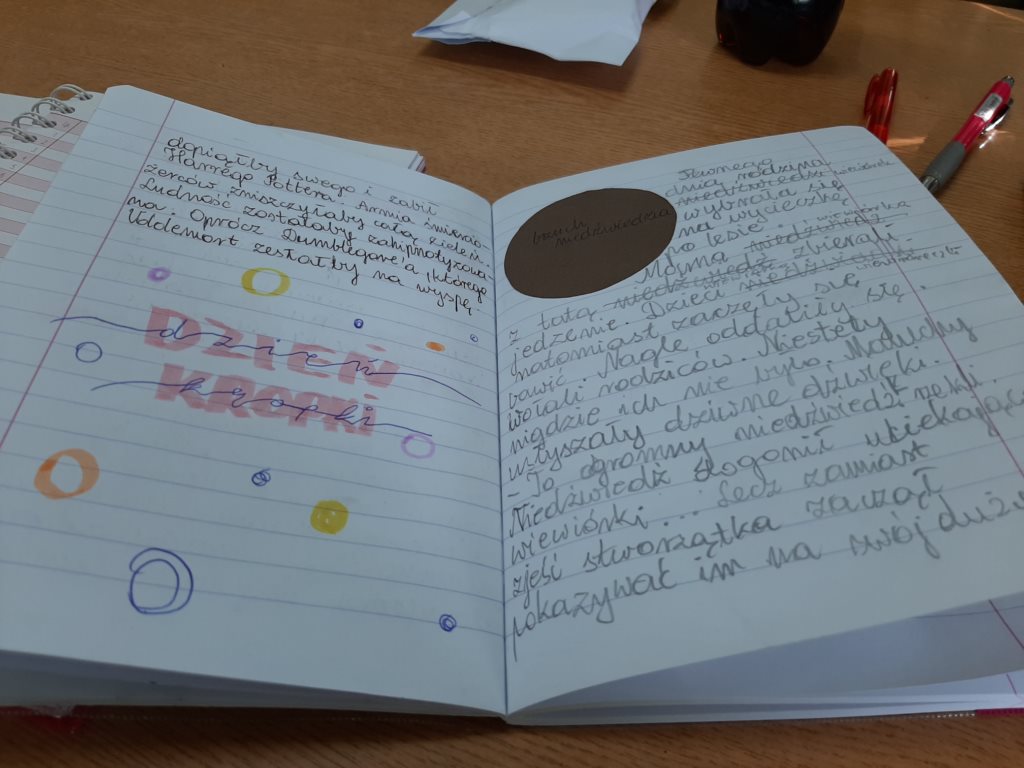 dopiąłby swego i zabił
Harrego Pottera. Armia śmierci
żerców zniszczyłaby całą ziele n.
Ludność zostałaby zahipnotyzowa
na. Oprócz Dumbledore'a, którego
Voldemort zesłałby na wyspę.
DZIEŃ
dzień
KROPKI
kropki
brzuch
niedźwiedzia
Pewnego
dnia rodzina
niedźwiedzi wiewiórek
wybrała się
na wycieczkę
po lesie.
Mama wiewiórka
z tatą zbierali
jedzenie. Dzieci
natomiast zaczęły się
bawić. Nagle oddaliły się,
wołali rodziców. Niestety
nigdzie ich nie było. Maluchy
usłyszały dziwne dźwięki.
- To ogromny niedźwiedź rzekli.
Niedźwiedź dogonił uciekające
wiewiórki... Lecz zamiast
zjeść stworzątka zaczął
pokazywać im na swój duży